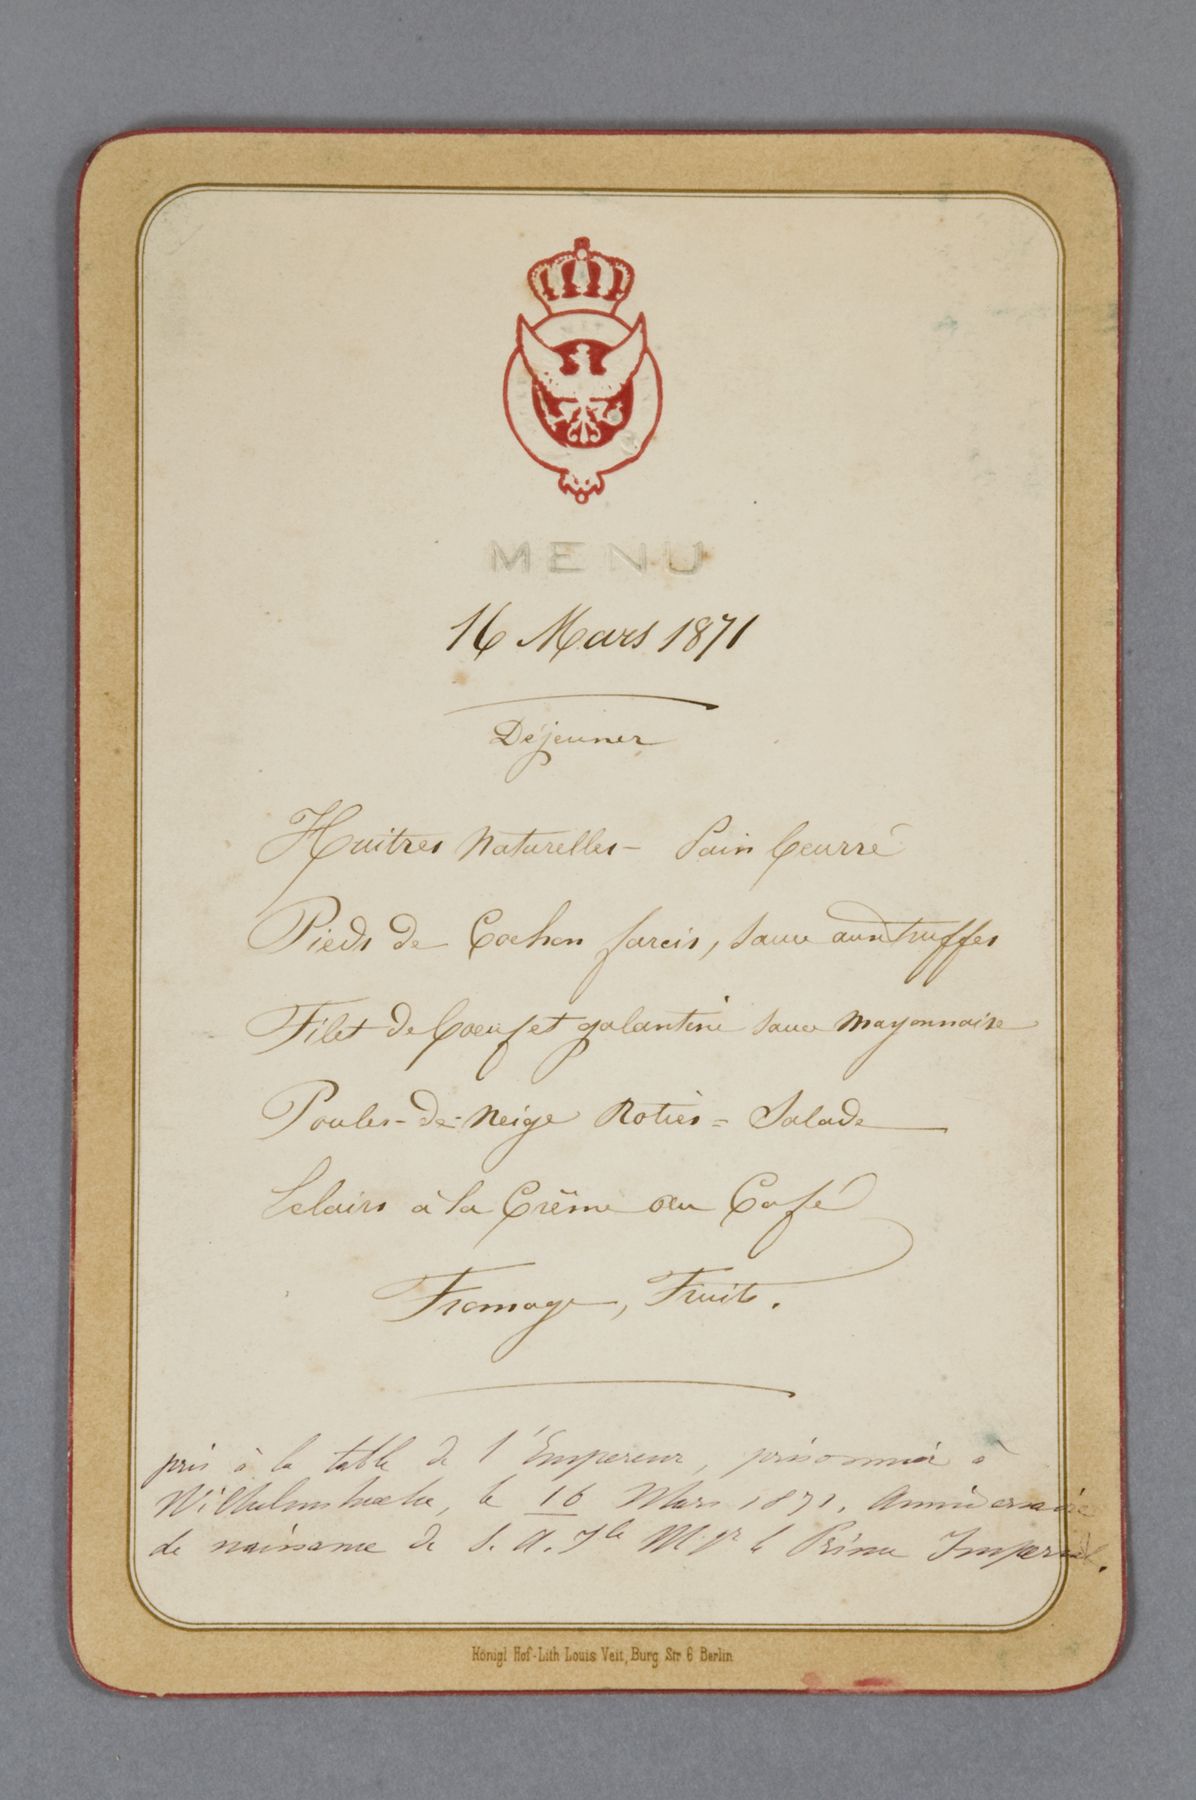 MENU
16 Mars 1871
Déjeuner
Huitres Naturelles - Pain beurré
Pieds de Cochon farcis, Sauce aux truffes
Filet de boeuf et galantine sauce Mayonnaise
Poules-de-Neige Roties = Salade
Eclairs à la Crême au Café
Fromage, Fruits.
pris à la table de l'Empereur, prisonnier à
Wilhelmshoehe, le 16 Mars 1871. Anniversaire
de naissance de S. A. Ile Mgr le Prince Impérial.
Königl Hof-Lith Louis Veit, Burg Str 6 Berlin